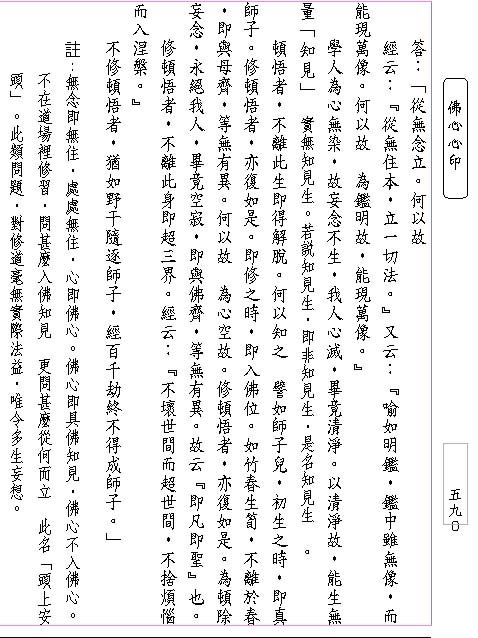 佛心心印
五九０
答：「從無念立。何以故
經云：『從無住本，立一切法。』又云：『喻如明鑑，鑑中雖無像，而
能現萬像。何以故　為鑑明故，能現萬像。』
學人為心無染，故妄念不生，我人心滅，畢竟清淨。以清淨故，能生無
量「知見」　實無知見生。若說知見生，即非知見生，是名知見生　。
頓悟者，不離此生即得解脫。何以知之　譬如師子兒，初生之時，即真
師子。修頓悟者，亦復如是。即修之時，即入佛位。如竹春生筍，不離於春
，即與母齊，等無有異。何以故　為心空故。修頓悟者，亦復如是。為頓除
妄念，永絕我人，畢竟空寂，即與佛齊，等無有異。故云『即凡即聖』也。
修頓悟者，不離此身即超三界。經云：『不壞世間而超世間，不捨煩惱
而入涅槃。』
不修頓悟者，猶如野干隨逐師子，經百千劫終不得成師子。」
註：無念即無住，處處無住，心即佛心。佛心即具佛知見，佛心不入佛心。
不在道場裡修習，問甚麼入佛知見　更問甚麼從何而立　此名「頭上安
頭」。此類問題，對修道毫無實際法益，唯令多生妄想。